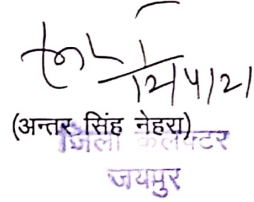 12/4/21
(अन्तर सिंह नेहरा)
जिला कलक्टर
जयपुर